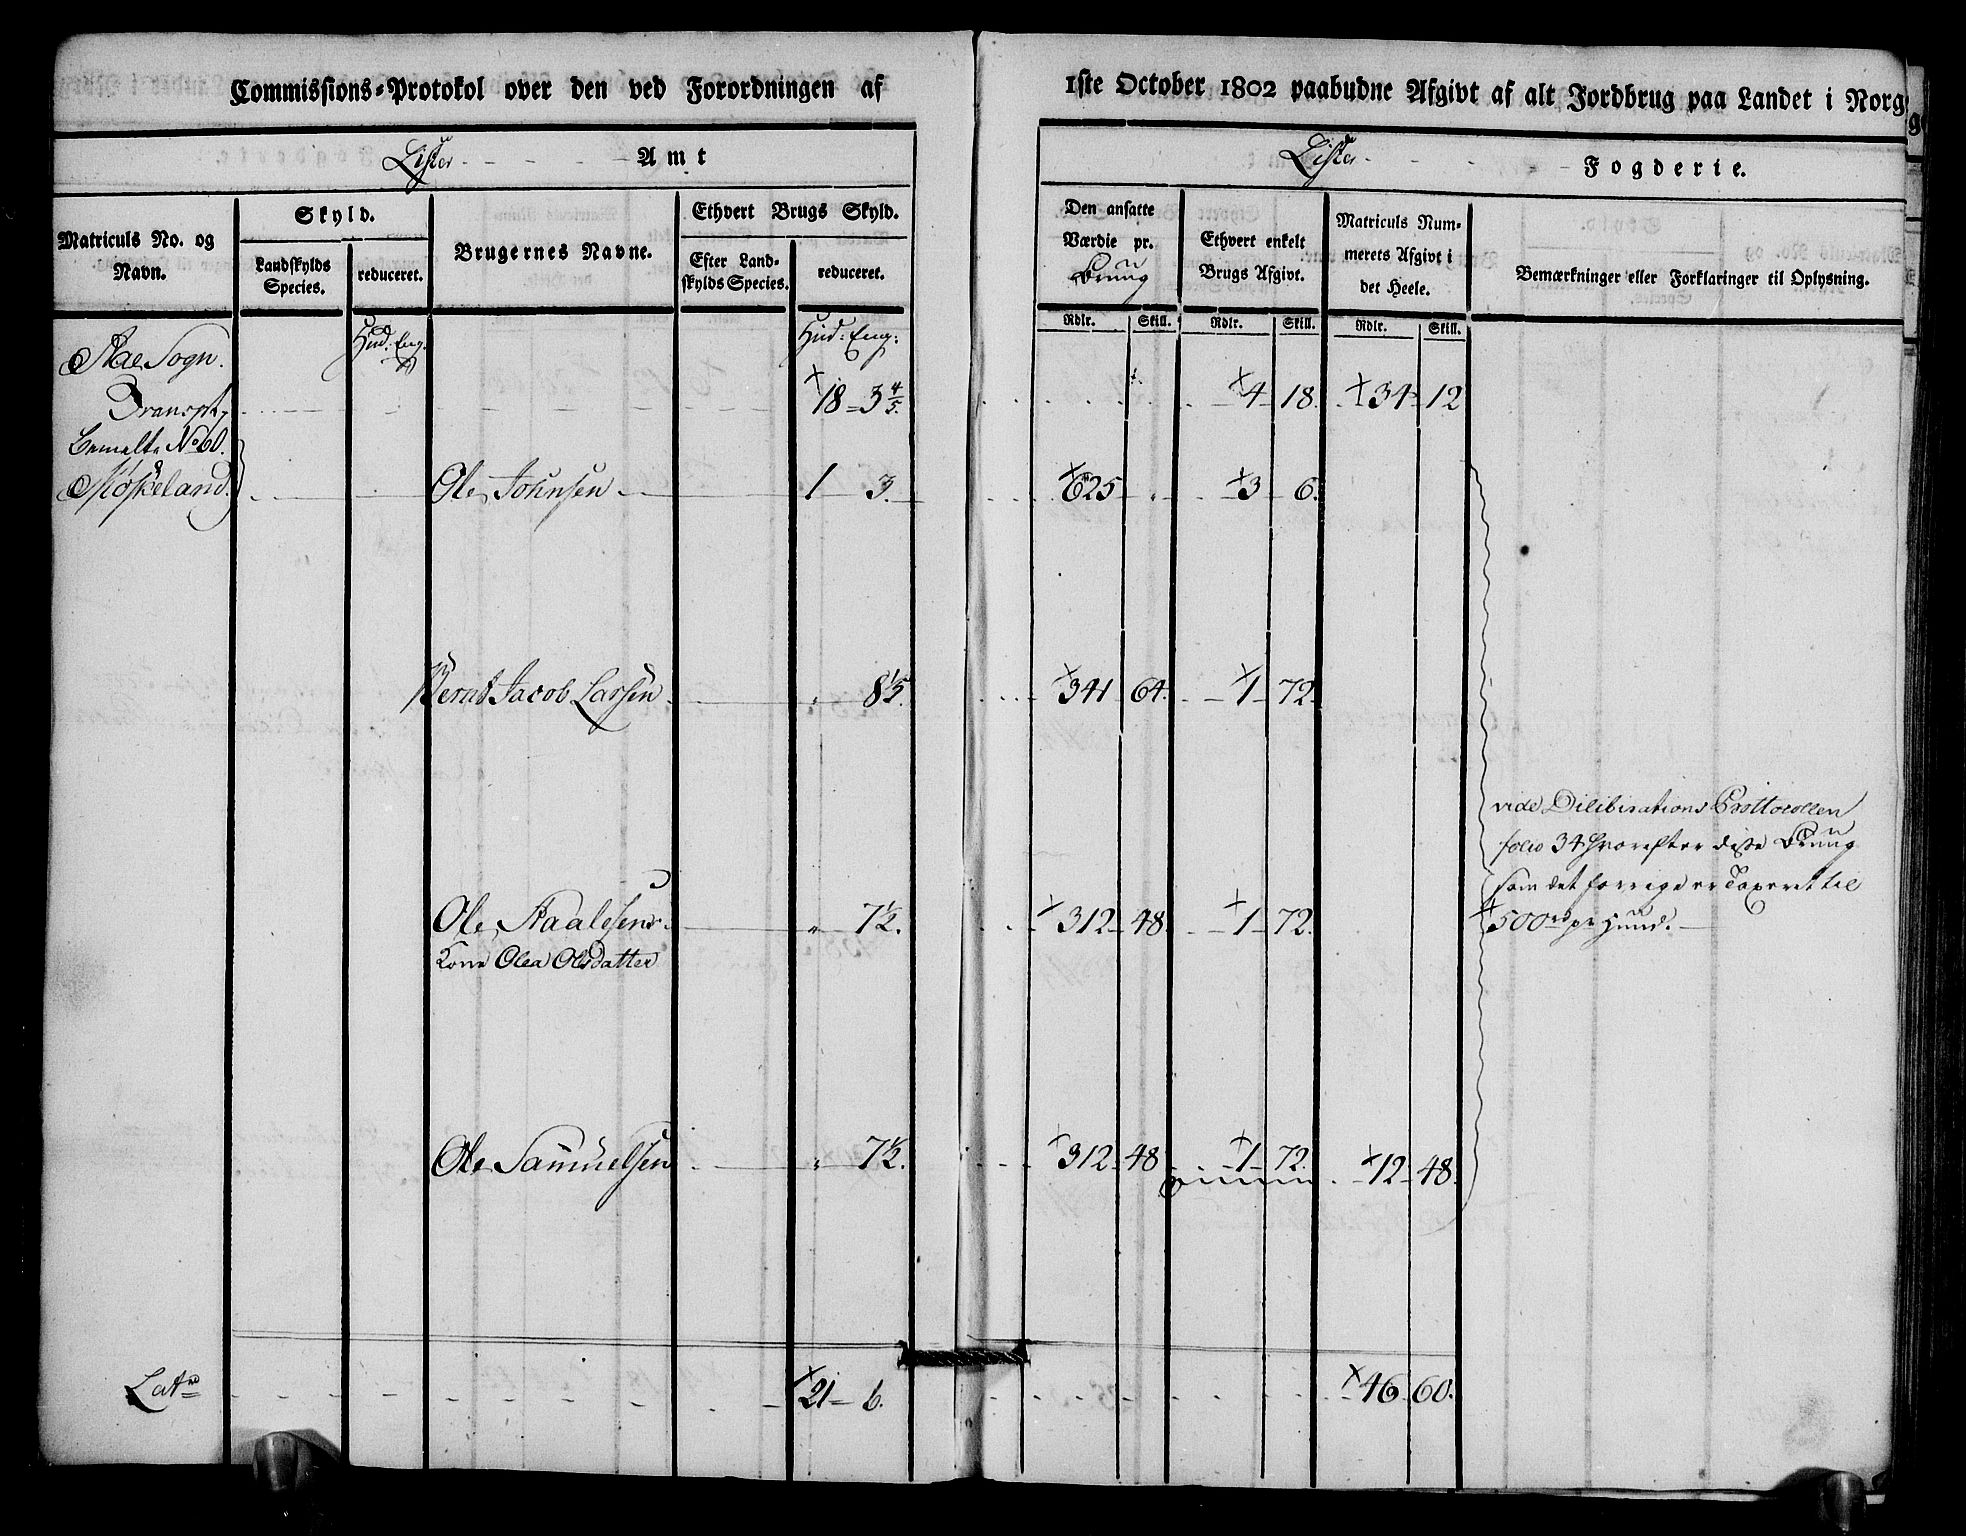 Commissions-Protokol over den ved Forordningen af 1ste October 1802 paabudne Afgivt af alt Jordbrug paa Landet i Norg
Lister Amt
Lister Fogderie.
Matriculs No. og Navn.
Skyld.
Landskylds Species.
reduceret.
Brugernes Navne.
Ethvert Brugs Skyld.
Efter Landskylds Species.
reduceret.
Den ansatte Værdie pr. Bruug
Ethvert enkelt Brugs Afgivt.
Matriculs Nummerets Afgivt i det Heele.
Bemærkninger eller Forklaringer til Oplysning.
Rdlr. Skill. Rdlr. Skill. Rdlr. Skill.
Hud: Eng. Hud: Eng:
Aae Sogn.
Transpt, 18 - 3 4/5. 4 18. 34 12
bemelte No 60.
Møskeland. Ole Johnsen 1 3. 625 " 3 6.
Bernt Jacob Larsen " 8 1/5. 341 64. 1 72.
vide Deliberations Prottocollen
folio 34 hvorefter disse Bruug
som det forrige er Taxeret til
500 rd pr Huud.
Ole Aadlesens " 7 1/2. 312 48. 1 72.
Kone Olea Olsdatter
Ole Samuelsen " 7 1/2. 312 48 1 72. 12 48.
Lat 21 - 6. 46 60.